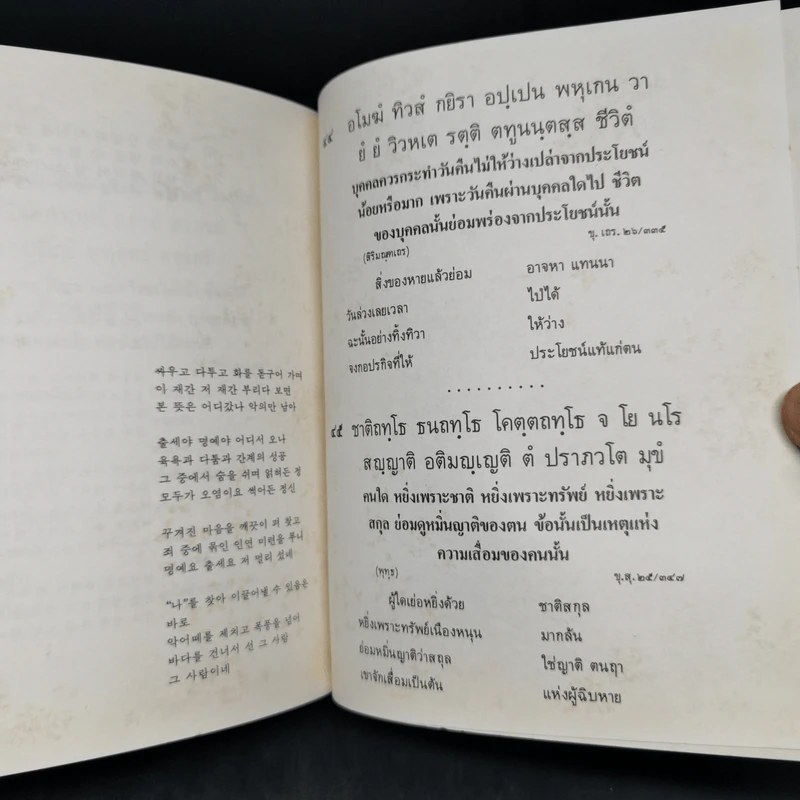 싸우고 다투고 화를 돋구어 가며
이 재간 저 재간 부리다 보면
본 뜻은 어디갔나 악의만 남아
출세야 명예야 어디서 오나
육욕과 다툼과 간계의 성공
그 중에서 숨을 쉬며 얽혀든 정
모두가 오염이요 썩어든 정신
꾸겨진 마음을 깨끗이 펴 찾고
죄 중에 묶인 인연 미련을 푸니
명예요 출세요 저 멀리 섰네
“나”를 찾아 이끌어낼 수 있을은
바로
악어떼를 제치고 폭풍을 넘어
바다를 건너서 선 그 사람
그 사람이네
๔๔ อโมฆํ ทิวสํ กยิรา อปฺเปน พหุเกน วา
ยํ ยํ วิวหเต รตฺติ ตทูนนฺตสฺส ชีวิตํ
บุคคลควรกระทำวันคืนไม่ให้ว่างเปล่าจากประโยชน์
น้อยหรือมาก เพราะวันคืนผ่านบุคคลใดไป ชีวิต
ของบุคคลนั้นย่อมพร่องจากประโยชน์นั้น
(สิริมณฺฑเถร) ขุ. เถร. ๒๖/๓๓๕
สิ่งของหายแล้วย่อม อาจหา แทนนา
วันล่วงเลยเวลา ไป่ได้
ฉะนั้นอย่างทิ้งทิวา ให้ว่าง
จงกอปรกิจที่ให้ ประโยชน์แท้แก่ตน
. . . . . . . . . .
๔๕ ชาติถทฺโธ ธนถทฺโธ โคตฺตถทฺโธ จ โย นโร
สญฺญาติ อติมญฺเญติ ตํ ปราภวโต มุขํ
คนใด หยิ่งเพราะชาติ หยิ่งเพราะทรัพย์ หยิ่งเพราะ
สกุล ย่อมดูหมิ่นญาติของตน ข้อนั้นเป็นเหตุแห่ง
ความเสื่อมของคนนั้น
(พุทฺธ) ขุ.สุ. ๒๕/๓๔๗
ผู้ใดเย่อหยิ่งด้วย ชาติสกุล
หยิ่งเพราะทรัพย์เนืองหนุน มากล้น
ย่อมหมิ่นญาติว่าสถุล ใช่ญาติ ตนฤา
เขาจักเสื่อมเป็นต้น แห่งผู้ฉิบหาย